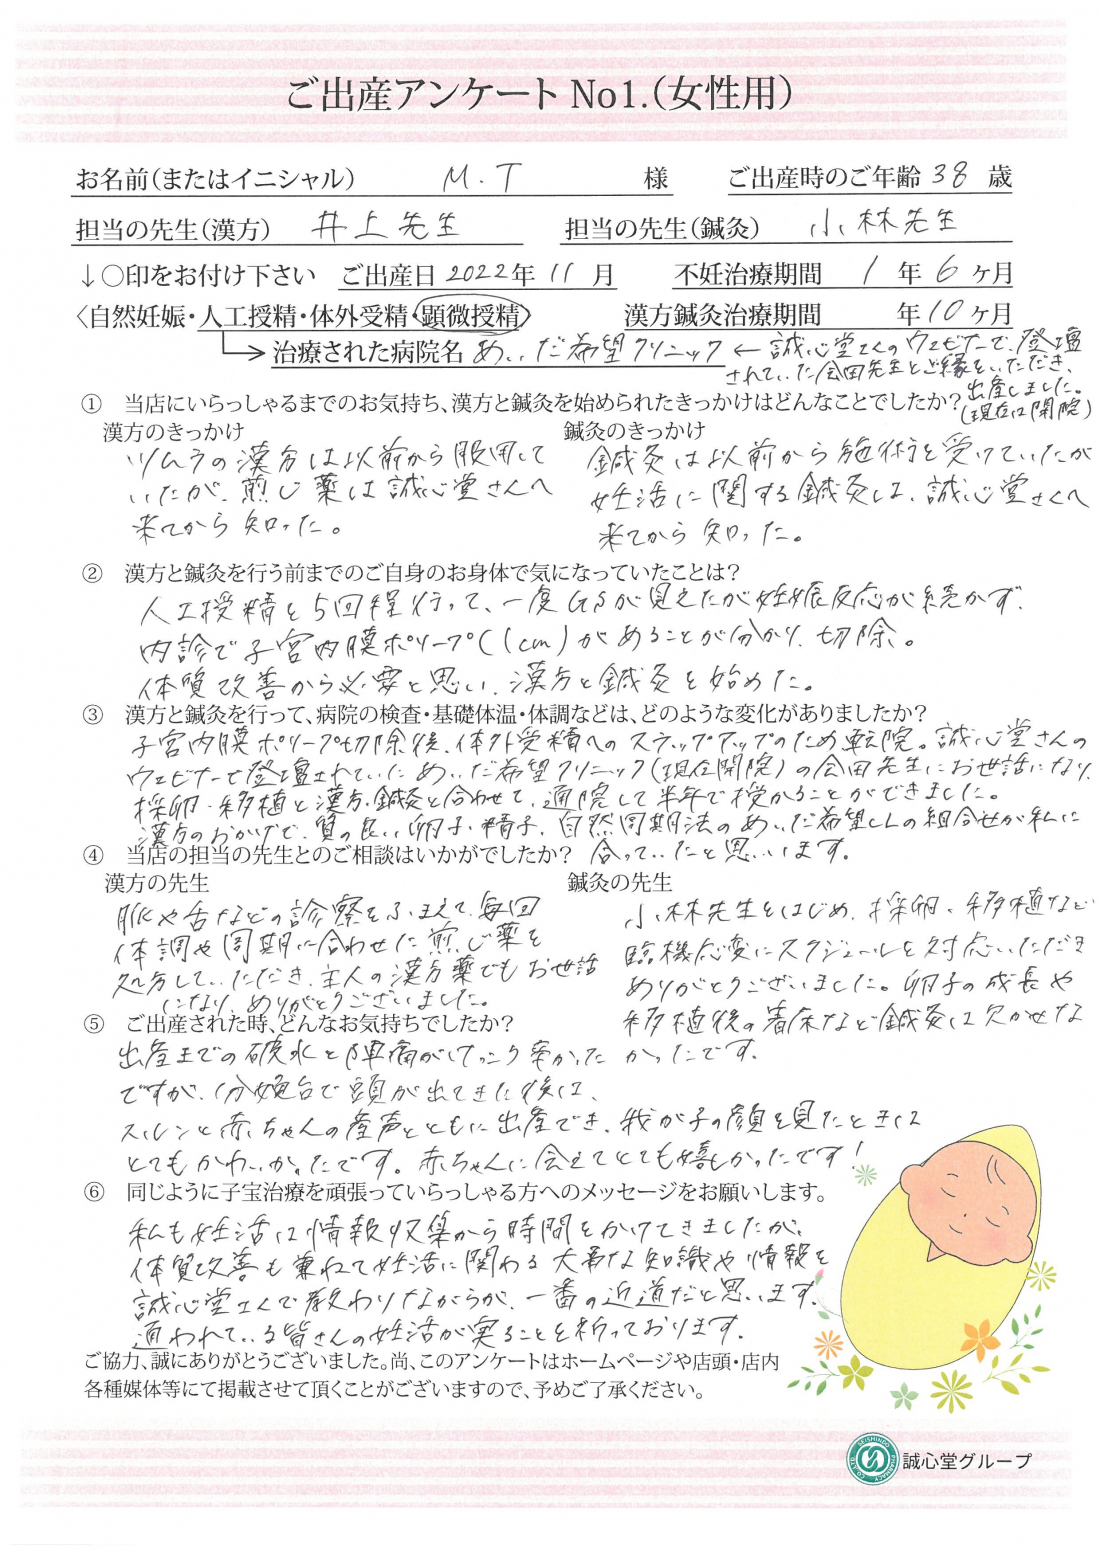 ご出産アンケート No1.(女性用)
お名前(またはイニシャル) M.T 様 ご出産時のご年齢 38 歳
担当の先生(漢方) 井上先生 担当の先生(鍼灸) 小林先生
↓○印をお付け下さい ご出産日 2022年 11 月 不妊治療期間 1 年 6 ヶ月
〈自然妊娠・人工授精・体外受精・顕微授精〉 漢方鍼灸治療期間 年 10 ヶ月
治療された病院名 あいだ希望クリニック ← 誠心堂さんのウェビナーで、登壇
されていた会田先生とご縁をいただき、
出産しました。
(現在は閉院)
① 当店にいらっしゃるまでのお気持ち、漢方と鍼灸を始められたきっかけはどんなことでしたか?
漢方のきっかけ
ツムラの漢方は以前から服用して
いたが、煎じ薬は誠心堂さんへ
来てから知った。
鍼灸のきっかけ
鍼灸は以前から施術を受けていたが
妊活に関する鍼灸は、誠心堂さんへ
来てから知った。
② 漢方と鍼灸を行う前までのご自身のお身体で気になっていたことは?
人工授精を5回程行って、一度GSが見えたが妊娠反応が続かず、
内診で子宮内膜ポリープ(1cm)があることが分かり、切除。
体質改善から必要と思い、漢方と鍼灸を始めた。
③ 漢方と鍼灸を行って、病院の検査・基礎体温・体調などは、どのような変化がありましたか?
子宮内膜ポリープ切除後、体外受精へのステップアップのため転院。誠心堂さんの
ウェビナーで登壇されていたあいだ希望クリニック(現在閉院)の会田先生にお世話になり、
採卵・移植と漢方、鍼灸を合わせて、通院して半年で授かることができました。
漢方のおかげで、質の良い卵子・精子、自然周期法のあいだ希望CLの組合せが私に
合っていたと思います。
④ 当店の担当の先生とのご相談はいかがでしたか?
漢方の先生
脈や舌などの診察をふまえて、毎回
体調や周期に合わせた煎じ薬を
処方していただき、主人の漢方薬でもお世話
になり、ありがとうございました。
鍼灸の先生
小林先生をはじめ、採卵、移植など
臨機応変にスケジュールを対応いただき
ありがとうございました。卵子の成長や
移植後の着床など鍼灸は欠かせな
かったです。
⑤ ご出産された時、どんなお気持ちでしたか?
出産までの破水と陣痛がけっこう辛かった
ですが、分娩台で頭が出てきた後は、
スルンと赤ちゃんの産声とともに出産でき、我が子の顔を見たときは
とてもかわいかったです。赤ちゃんに会えてとても嬉しかったです!
⑥ 同じように子宝治療を頑張っていらっしゃる方へのメッセージをお願いします。
私も妊活は情報収集から時間をかけてきましたが、
体質改善も兼ねて妊活に関わる大事な知識や情報を
誠心堂さんで教わりながらが、一番の近道だと思います。
通われている皆さんの妊活が実ることを祈っております。
ご協力、誠にありがとうございました。尚、このアンケートはホームページや店頭・店内
各種媒体等にて掲載させて頂くことがございますので、予めご了承ください。
SEISHINDO PHARMACY CO., LTD.
誠心堂グループ